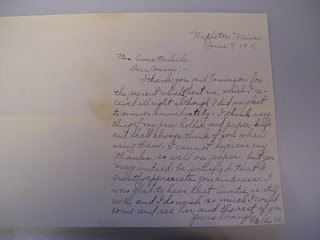 Mapleton, Minn.
June 7, 1916
Mrs. Anna
Dear Cousin, -
I thank you and for
the present which sent me, which I re-
ceived all right although I did neglect
to answer immediately. I think every
thing of my pen holder and paper knife
and shall always think of you when
using them. I cannot express my
thanks so well on paper, but you
may indeed be satisfied that I
greatly appreciate your kindness. I
was glad to hear that is doing
well and I do wish as much I would
come and see her and the rest of you.
Yours lovingly